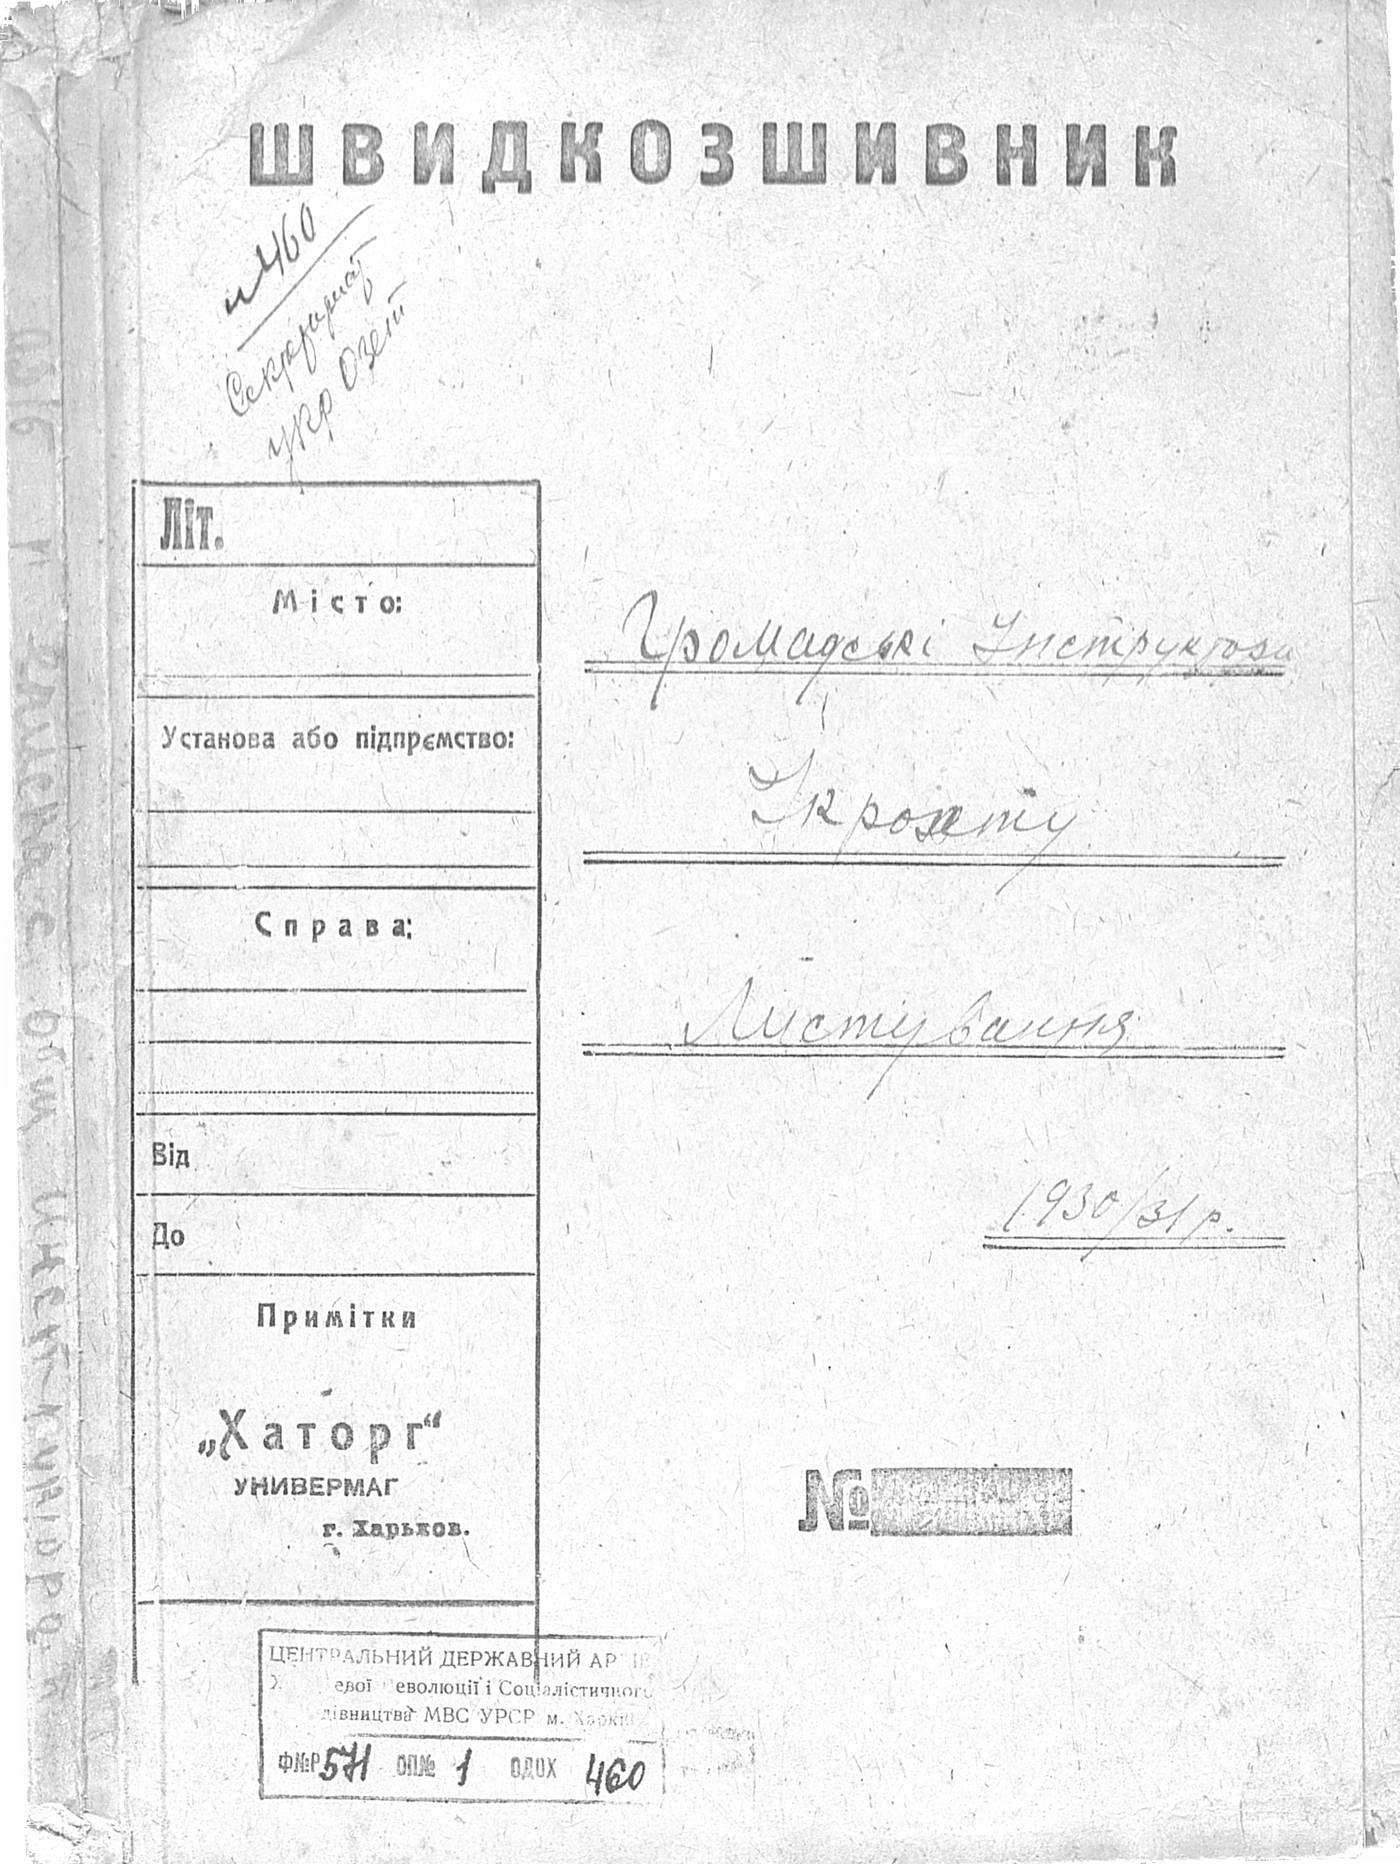 ШВИДКОЗШИВНИК
460
Секретариат
Укр Озет
Літ.
Місто:
Установа або підпрємство:
Справа:
Від
До
Примітки
„Хаторг“
УНИВЕРМАГ
г. Харьков.
Громадські Інструктори
Укрозету
Листування
1930/31 р.
№
ЦЕНТРАЛЬНИЙ ДЕРЖАВНИЙ АР
евої еволюції і Соціалістичного
дівництва МВС УРСР м. Харків
Ф№Р 571 ОП№ 1 ОДОХ 460